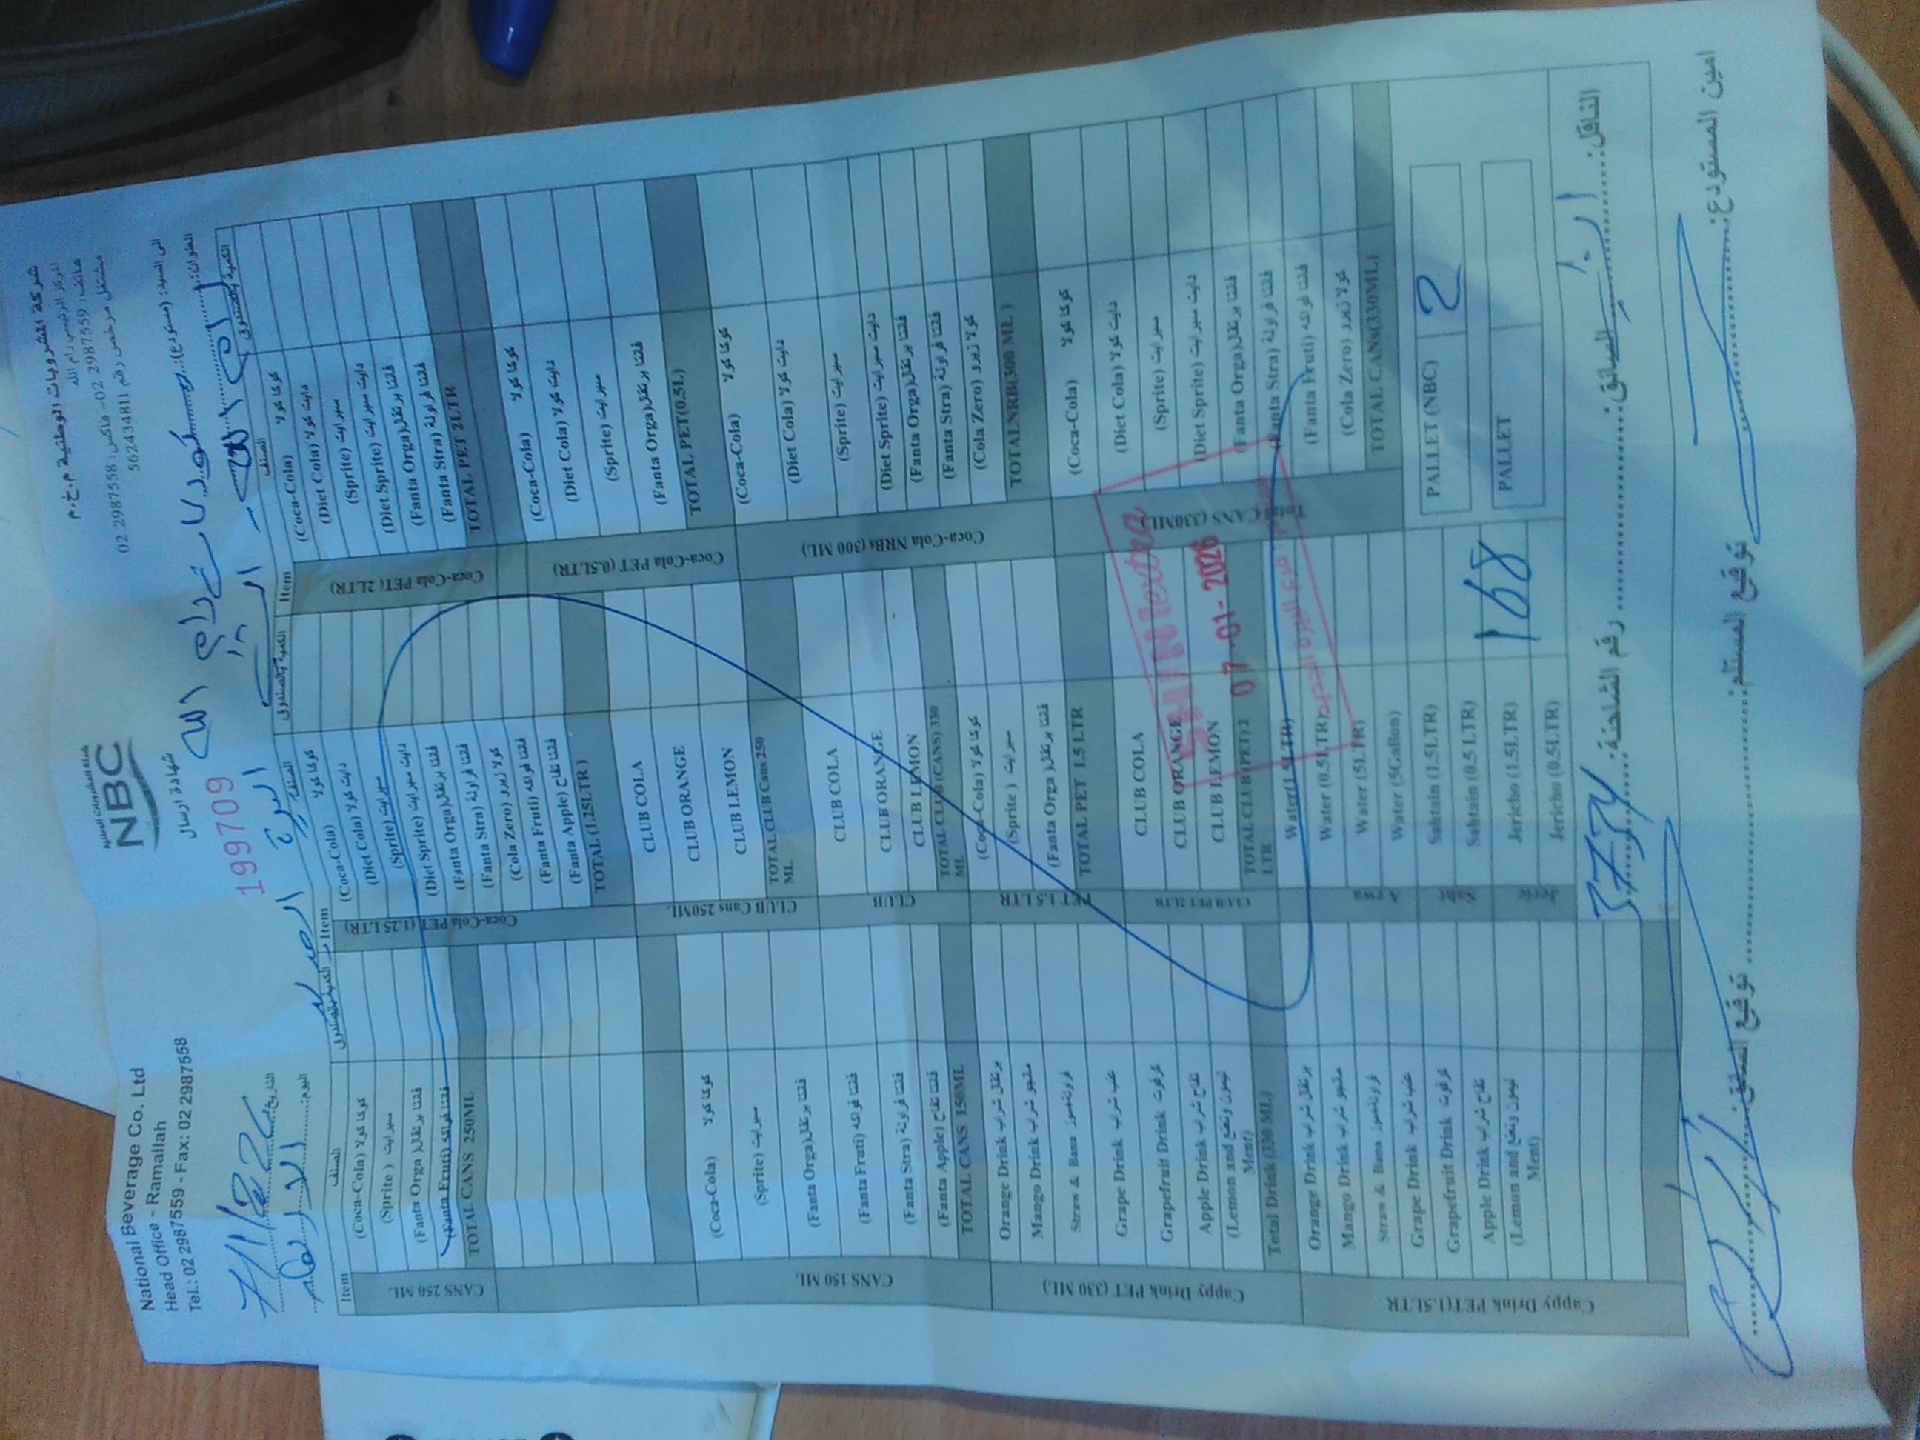 National Beverage Co. Ltd
Head Office - Ramallah
Tel.: 02 2987559 - Fax: 02 2987558
شركة المشروبات الوطنية
NBC
شهادة ارسال
199709
شركة المشروبات الوطنية م.خ.م
المركز الرئيسي رام الله
هاتف: 2987559 02 - فاكس: 2987558 02
مشتغل مرخص رقم 562434811
التاريخ: 7/1/26
اليوم: الاربعاء
الى السيد: (مستودع):
العنوان:
رام الله
البيرة
Item
الصنف
الكمية بالصندوق
Item
الصنف
الكمية بالصندوق
Item
الصنف
الكمية بالصندوق
CANS 250 ML
(Coca-Cola) كوكا كولا
(Sprite ) سبرايت
(Fanta Orga) فنتا برتقال
(Fanta Fruti) فنتا فواكه
TOTAL CANS 250ML
CANS 150 ML
(Coca-Cola) كوكا كولا
(Sprite) سبرايت
(Fanta Orga) فنتا برتقال
(Fanta Fruti) فنتا فواكه
(Fanta Stra) فنتا فراولة
(Fanta Apple) فنتا تفاح
TOTAL CANS 150ML
Cappy Drink PET (330 ML)
Orange Drink برتقال شراب
Mango Drink مانجو شراب
Straw & Bana فراولة وموز
Grape Drink عنب شراب
Grapefruit Drink جرفوت
Apple Drink تفاح شراب
(Lemon and ليمون ونعنع Ment)
Total Drink (330 ML)
Cappy Drink PET(1.5LTR
Orange Drink برتقال شراب
Mango Drink مانجو شراب
Straw & Bana فراولة وموز
Grape Drink عنب شراب
Grapefruit Drink جرفوت
Apple Drink تفاح شراب
(Lemon and ليمون ونعنع Ment)
Coca-Cola PET (1.25LTR)
(Coca-Cola) كوكا كولا
(Diet Cola) دايت كولا
(Sprite) سبرايت
(Diet Sprite) دايت سبرايت
(Fanta Orga) فنتا برتقال
(Fanta Stra) فنتا فراولة
(Cola Zero) كولا زيرو
(Fanta Fruti) فنتا فواكه
(Fanta Apple) فنتا تفاح
TOTAL (1.25LTR )
CLUB Cans 250ML
CLUB COLA
CLUB ORANGE
CLUB LEMON
TOTAL CLUB Cans 250 ML
CLUB
CLUB COLA
CLUB ORANGE
CLUB LEMON
TOTAL CLUB (CANS) 330 ML
PET 1.5 LTR
(Coca-Cola) كوكا كولا
(Sprite ) سبرايت
(Fanta Orga) فنتا برتقال
TOTAL PET 1.5 LTR
CLUB PET 2LTR
CLUB COLA
CLUB ORANGE
CLUB LEMON
TOTAL CLUB (PET) 2 LTR
Arwa
Water(1.5LTR)
Water (0.5LTR)
Water (5LTR)
Water (5Gallon)
Saht
Sahtain (1.5LTR)
Sahtain (0.5 LTR)
168
Jeric
Jericho (1.5LTR)
Jericho (0.5LTR)
Coca-Cola PET (2LTR)
(Coca-Cola) كوكا كولا
(Diet Cola) دايت كولا
(Sprite) سبرايت
(Diet Sprite) دايت سبرايت
(Fanta Orga) فنتا برتقال
(Fanta Stra) فنتا فراولة
TOTAL PET 2LTR
Coca-Cola PET (0.5LTR)
(Coca-Cola) كوكا كولا
(Diet Cola) دايت كولا
(Sprite) سبرايت
(Fanta Orga) فنتا برتقال
TOTAL PET(0.5L)
Coca-Cola NRBs (300 ML)
(Coca-Cola) كوكا كولا
(Diet Cola) دايت كولا
(Sprite) سبرايت
(Diet Sprite) دايت سبرايت
(Fanta Orga) فنتا برتقال
(Fanta Stra) فنتا فراولة
(Cola Zero) كولا زيرو
TOTALNRB(300 ML )
Total CANS (330ML)
(Coca-Cola) كوكا كولا
(Diet Cola) دايت كولا
(Sprite) سبرايت
(Diet Sprite) دايت سبرايت
(Fanta Orga) فنتا برتقال
(Fanta Stra) فنتا فراولة
(Fanta Fruti) فنتا فواكه
(Cola Zero) كولا زيرو
TOTAL CANS(330ML)
PALLET (NBC) 2
PALLET
07-01-2026
الناقل: السائق: رقم الشاحنة: 3734
امين المستودع: توقيع المستلم: توقيع السائق: